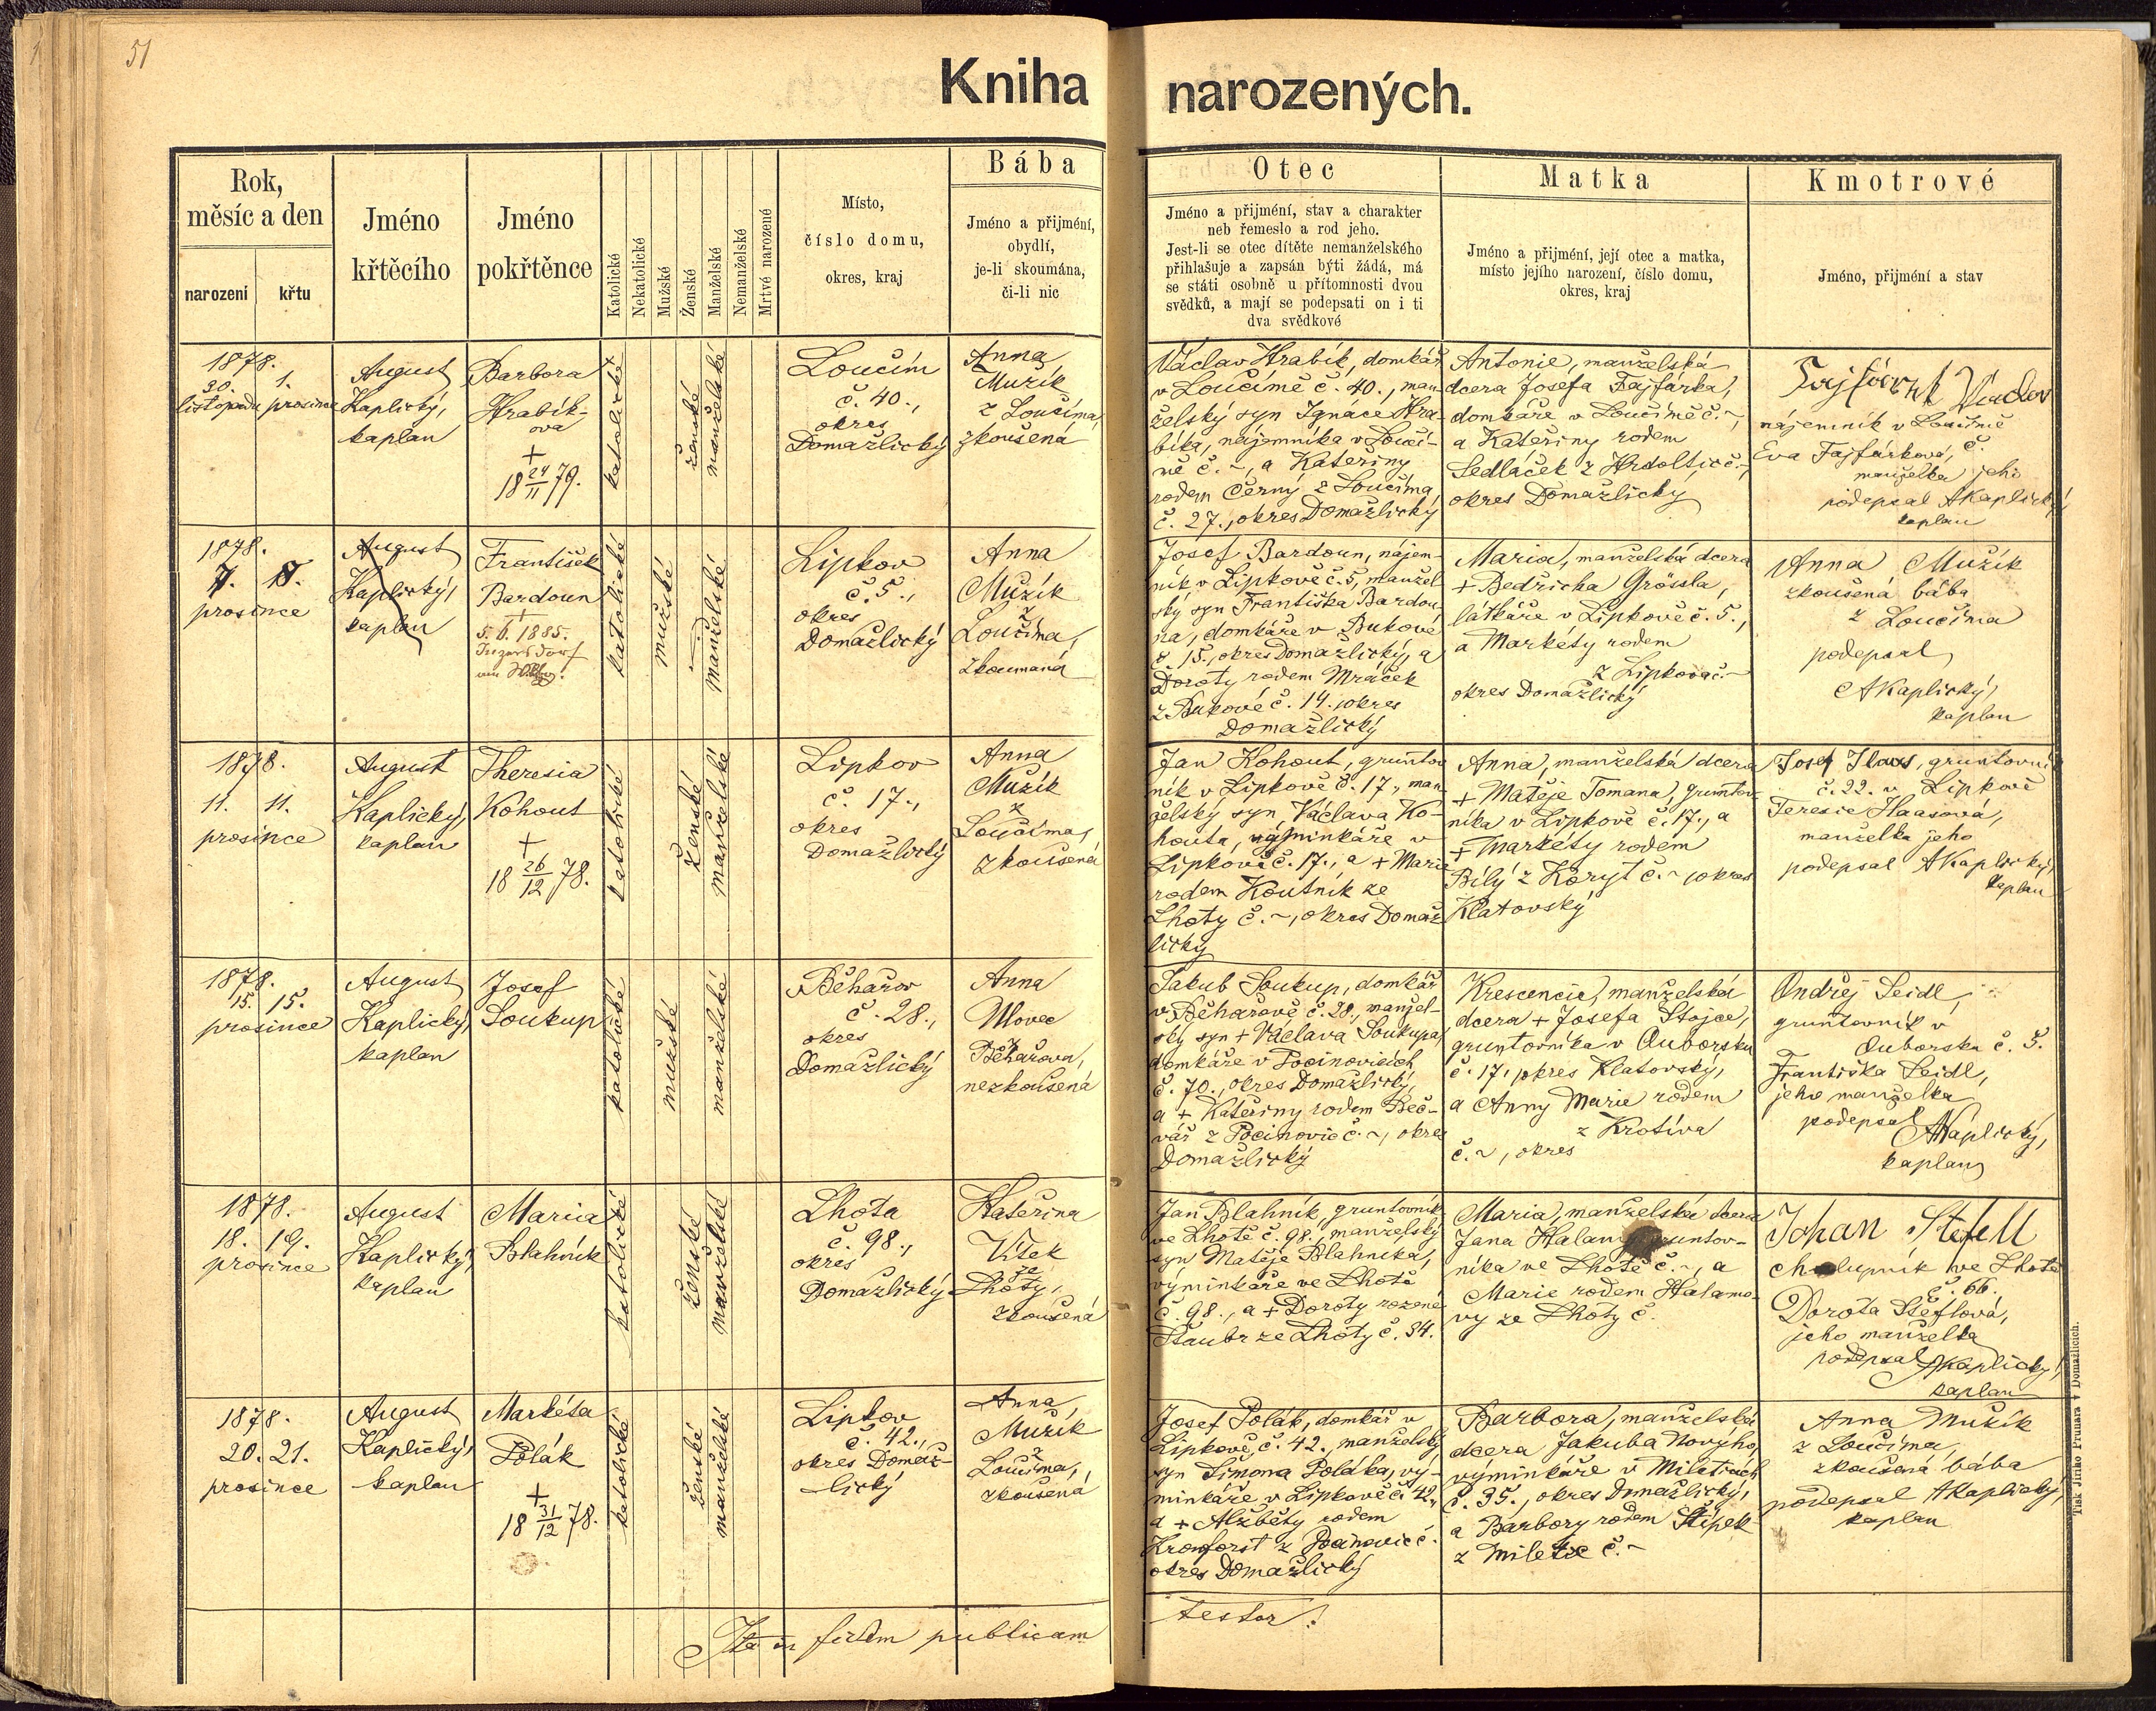 51
Kniha narozených.
Rok,
měsíc a den
narození
křtu
Jméno
křtěcího
Jméno
pokřtěnce
Katolické
Nekatolické
Mužské
Ženské
Manželské
Nemanželské
Mrtvé narozené
Místo,
číslo domu,
okres, kraj
Bába
Jméno a příjmení,
obydlí,
je-li skoumána,
či-li nic
Otec
Jméno a přijmení, stav a charakter
neb řemeslo a rod jeho.
Jest-li se otec dítěte nemanželského
přihlašuje a zapsán býti žádá, má
se státi osobně u přítomnosti dvou
svědků, a mají se podepsati on i ti
dva svědkové
Matka
Jméno a přijmení, její otec a matka,
místo jejího narození, číslo domu,
okres, kraj
Kmotrové
Jméno, přijmení a stav
1878.
30. 1.
listopadu prosince
August
Kaplický,
kaplan
Barbora
Hrabík-
ova
+
18 24/11 79.
katolické
ženské
manželské
Loučím
č. 40.,
okres
Domažlický
Anna
Mužík
z Loučíma,
zkoušená
Václav Hrabík, domkář
v Loučimě č. 40., man-
želský syn Ignace Hra-
bíka, nájemníka v Loučí-
mě č. ~, a Kateřiny
rodem Černý z Loučima
č. 27., okres Domažlický
Antonie, manželská
dcera Josefa Fajfárka,
domkáře v Loučimě č. ~,
a Kateřiny rodem
Sedláček z Hrdoltic č. ~,
okres Domažlický
Fajfárek Václav
nájemník v Loučimě
č.
Eva Fajfárková,
manželka jeho
podepsal AKaplický
kaplan
1878.
7. 8.
prosince
August
Kaplický,
kaplan
František
Bardoun
+
5. 6. 1885.
katolické
mužské
manželské
Lipkov
č. 5.,
okres
Domažlický
Anna
Mužík
z
Loučíma,
zkoumaná
Josef Bardoun, nájem-
ník v Lipkově č. 5, manžel
ský syn Františka Bardou-
na, domkáře v Bukové
č. 15., okres Domažlický, a
Doroty rodem Mráček
z Bukové č. 14. okres
Domažlický
Maria, manželská dcera
+ Bedřicha Grössla,
látkáře v Lipkově č. 5.,
a Markéty rodem
z Lipkova č. ~
okres Domažlický
Anna Mužík
zkoušená bába
z Loučíma
podepsal
AKaplický,
kaplan
1878.
11. 11.
prosince
August
Kaplický,
kaplan
Theresia
Kohout
+
18 26/12 78.
katolické
ženské
manželské
Lipkov
č. 17.,
okres
Domažlický
Anna
Mužík
z
Loučíma,
zkoušená
Jan Kohout, gruntov
ník v Lipkově č. 17., man-
želský syn Václava Ko-
houta, výminkáře v
Lipkově č. 17., a + Marie
rodem Koutník ze
Lhoty č. ~, okres Domaž
lický
Anna, manželská dcera
+ Matěje Tomana, gruntov-
níka v Lipkově č. 17., a
+ Markéty rodem
Bílý z Koryt č. ~ okres
Klatovský
Josef Haas, gruntovní
č. 22. v Lipkově
Teresie Haasová,
manželka jeho
podepsal AKaplický,
kaplan
1878.
15. 15.
prosince
August
Kaplický,
kaplan
Josef
Soukup
katolické
mužské
manželské
Běhařov
č. 28.,
okres
Domažlický
Anna
Vlovec
z
Běhařova,
nezkoušená
Jakub Soukup, domkář
v Běhařově č. 28., manžel-
ský syn + Václava Soukupa,
domkáře v Pocinovicích
č. 70., okres Domažlický,
a + Kateřiny rodem Beč-
vář z Pocinovic č. ~, okres
Domažlický
Krescencie, manželská
dcera + Josefa Stojce,
gruntovníka v Ouborsku
č. 17, okres Klatovský,
a Anny Marie rodem
z Krotíva
č. ~, okres
Ondřej Seidl,
gruntovník v
Ouborsku č. 5.
Františka Seidl,
jeho manželka
podepsal AKaplický,
kaplan
1878.
18. 19.
prosince
August
Kaplický,
kaplan
Maria
Blahník
katolické
ženské
manželské
Lhota
č. 98.,
okres
Domažlický
Kateřina
Vítek
ze
Lhoty,
zkoušená
Jan Blahník, gruntovník
ve Lhotě č. 98., manželský
syn Matěje Blahníka,
výminkáře ve Lhotě
č. 98., a + Doroty rozené
Štaubr ze Lhoty č. 34.
Maria, manželská dcera
Jana Halamy gruntov-
níka ve Lhotě č. ~, a
Marie rodem Halamo-
vy ze Lhoty č.
Johan Stefell
chalupník ve Lhotě
č. 66.
Dorota Šteflová,
jeho manželka
podepsal AKaplický,
kaplan
1878.
20. 21.
prosince
August
Kaplický,
kaplan
Markéta
Polák
+
18 31/12 78.
katolické
ženské
manželské
Lipkov
č. 42.,
okres Domaž-
lický
Anna
Mužík
z
Loučíma,
zkoušená
Josef Polák, domkář v
Lipkově č. 42., manželský
syn Šimona Poláka, vý-
minkáře v Lipkově č. 42.,
a + Alžběty rodem
okres Domažlický
Barbora, manželská
dcera Jakuba Nového,
výminkáře v Mileticích
č. 35., okres Domažlický,
a Barbory rodem Štípek
z Miletic č. ~
Anna Mužík
z Loučíma,
zkoušená bába
podepsal AKaplický,
kaplan
Ita in fidem publicam testor!
Tisk Jiřího Prunara v Domažlicích.